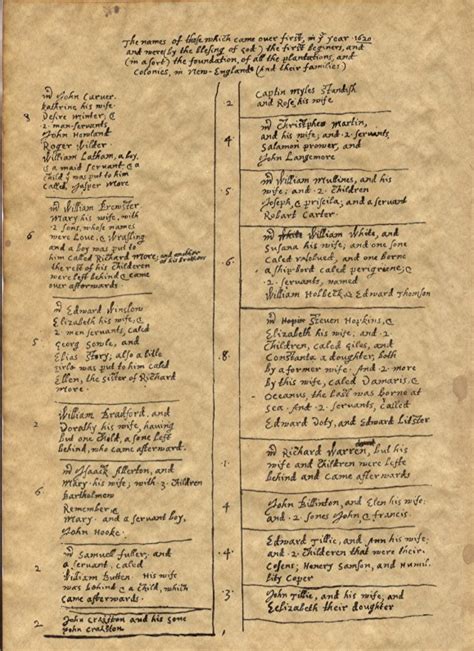 The names of those which came over first, in yᵉ year 1620
and were (by the blesing of god) the first beginers, and
(in a sort) the foundation, of all the plantations, and
Colonies, in New-England (and their families)
mr John Carver.
kathrine his wife.
Desire minter; &
2. man-servants,
John Howland
Roger Wilder
William Latham, a boy,
& a maid servant, & a
child yt was put to him
called, Jasper More
8
mr William Brewster
Mary his wife, with
2 sons, whose names
were Love, & Wrasling
and a boy was put to
him called Richard More; and another
of his brothers
the rest of his Childeren
were left behind & came
over afterwards
6
mr Edward Winslow
Elizabeth his wife, &
2 men servants, caled
Georg Sowle, and
Elias Story; also a litle
girle was put to him caled
Ellen, the sister of Richard
More.
5
William Bradford, and
Dorathy his wife, having
but one Child, a sone left
behind, who came afterward.
2
mr Isaack Allerton, and
Mary his wife; with 3 Children
Bartholmew
Remember, &
Mary. and a servant boy,
John Hooke.
6
mr Samuell fuller, and
a servant, caled
William Butten. His wife
was behind, & a Child, which
came afterwards.
2
John Crakston and his sone
John Crakston
2
Captin Myles Standish
and Rose, his wife
2
mr Christopher Martin,
and his wife; and 2 servants,
Salamon prower, and
John Langemore
4
mr William Mullines, and his
wife; and 2 Children
Joseph, & priscila; and a servant
Robart Carter.
5
mr William White, and
Susana his wife; and one sone
Caled resolved, and one borne
a ship-bord caled perigriene; &
2. servants, named
William Holbeck, & Edward Thomson
.6.
mr Steven Hopkins, &
Elizabeth his wife; and 2
Children, caled Giles, and
Constanta a doughter, both
by a former wife. And 2 more
by this wife, caled Damaris, &
Oceanus, the last was borne at
sea. And 2. servants, called
Edward Doty, and Edward Litster
.8.
mr Richard Warren, but his
wife and Children were left
behind and came afterwards
.1.
John Billinton, and Elen his wife:
and .2. sones John & francis.
4
Edward Tillie, and Ann his wife:
and 2. Children that were their
Cosens; Henery Samson, and Humil-
lity Coper
.4.
John Tillie, and his wife; and
Eelizabeth their doughter
.3.